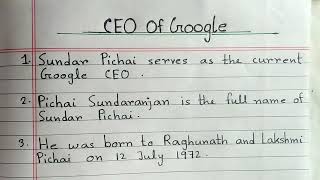 CEO Of Google
1. Sundar Pichai serves as the current
Google CEO.
2. Pichai Sundaranjan is the full name of
Sundar Pichai.
3. He was born to Raghunath and Lakshmi
Pichai on 12 July 1972.